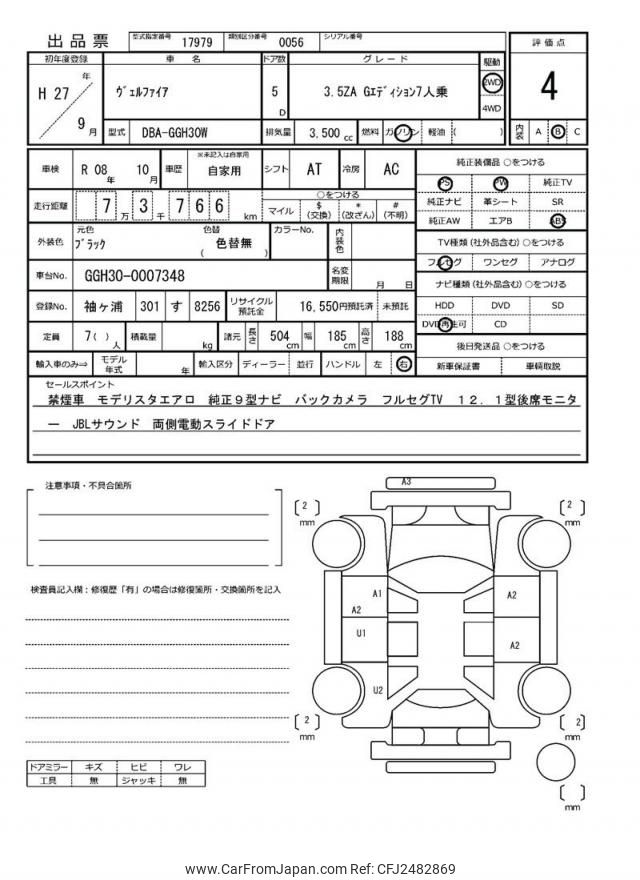 出品票
型式指定番号 17979 類別区分番号 0056 シリアル番号
初年度登録 車名 ドア数 グレード 駆動 評価点
H 27 年 9 月
ヴェルファイア 5 D 3.5ZA Gエディション7人乗 2WD 4WD 4
型式 DBA-GGH30W 排気量 3,500 cc 燃料 ガソリン 軽油 ( ) 内装 A B C
車検 R 08 年 10 月 車歴 ※未記入は自家用 自家用 シフト AT 冷房 AC
走行距離 7 万 3 千 7 6 6 km
○をつける
マイル $ (交換) * (改ざん) # (不明)
外装色 元色 ブラック 色替 色替無 ( ) カラーNo. 内装色
車台No. GGH30-0007348 名変期限 月 日
登録No. 袖ヶ浦 301 す 8256 リサイクル預託金 16,550円預託済 未預託
定員 7 ( ) 人 積載量 kg 諸元 長さ 504 cm 幅 185 cm 高さ 188 cm
輸入車のみ⇒ モデル年式 年 輸入区分 ディーラー 並行 ハンドル 左 右
純正装備品 ○をつける
PS PW 純正TV
純正ナビ 革シート SR
純正AW エアB ABS
TV種類 (社外品含む) ○をつける
フルセグ ワンセグ アナログ
ナビ種類 (社外品含む) ○をつける
HDD DVD SD
DVD再生可 CD
後日発送品 ○をつける
新車保証書 車輌取説
セールスポイント
禁煙車 モデリスタエアロ 純正9型ナビ バックカメラ フルセグTV 12.1型後席モニタ
ー JBLサウンド 両側電動スライドドア
注意事項・不具合箇所
検査員記入欄：修復歴「有」の場合は修復箇所・交換箇所を記入
ドアミラー キズ ヒビ ワレ
工具 無 ジャッキ 無
A3
2 mm
2 mm
A1
A2
A2
U1
A2
U2
2 mm
2 mm
mm
www.CarFromJapan.com Ref: CFJ2482869